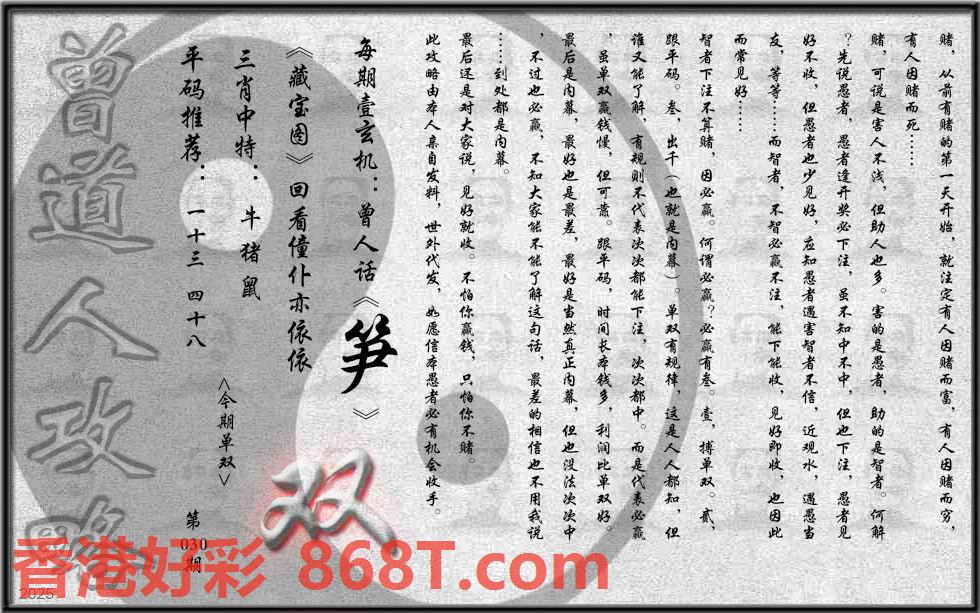 赌，从前有赌的第一天开始，就注定有人因赌而富，有人因赌而穷，
有人因赌而死……
赌，可说是害人不浅，但助人也多。害的是愚者，助的是智者。何解
？先说愚者，愚者逢开奖必下注，虽不知中不中，但也下注，愚者见
好不收，但愚者也少见好，应知愚者遇害智者不信，近观水，遇愚当
友，等等……而智者，不智必赢不注，能下能收，见好即收，也因此
而常见好……
智者下注不算赌，因必赢。何谓必赢？必赢有叁。壹，搏单双。贰，
跟平码。叁，出千（也就是内幕）。单双有规律，这是人人都知，但
谁又能了解，有规则不代表次次都能下注，次次都中。而是代表必赢
，虽单双赢钱慢，但可靠。跟平码，时间长本钱多，利润比单双好。
最后是内幕，最好也是最差，最好是当然真正内幕，但也没法次次中
，不过也必赢，不知大家能不能了解这句话，最差的相信也不用我说
……到处都是内幕。
最后还是对大家说，见好就收。不怕你赢钱，只怕你不赌。
此攻略由本人亲自发料，世外代发，如愿信本愚者必有机会收手。
每期壹玄机：曾人话《笋》
《藏宝图》回看僮仆亦依依
三肖中特：牛猪鼠
平码推荐：一十三 四十八
<今期单双>
双
第
030
期
曾道人攻略
香港好彩 868T.com
2025